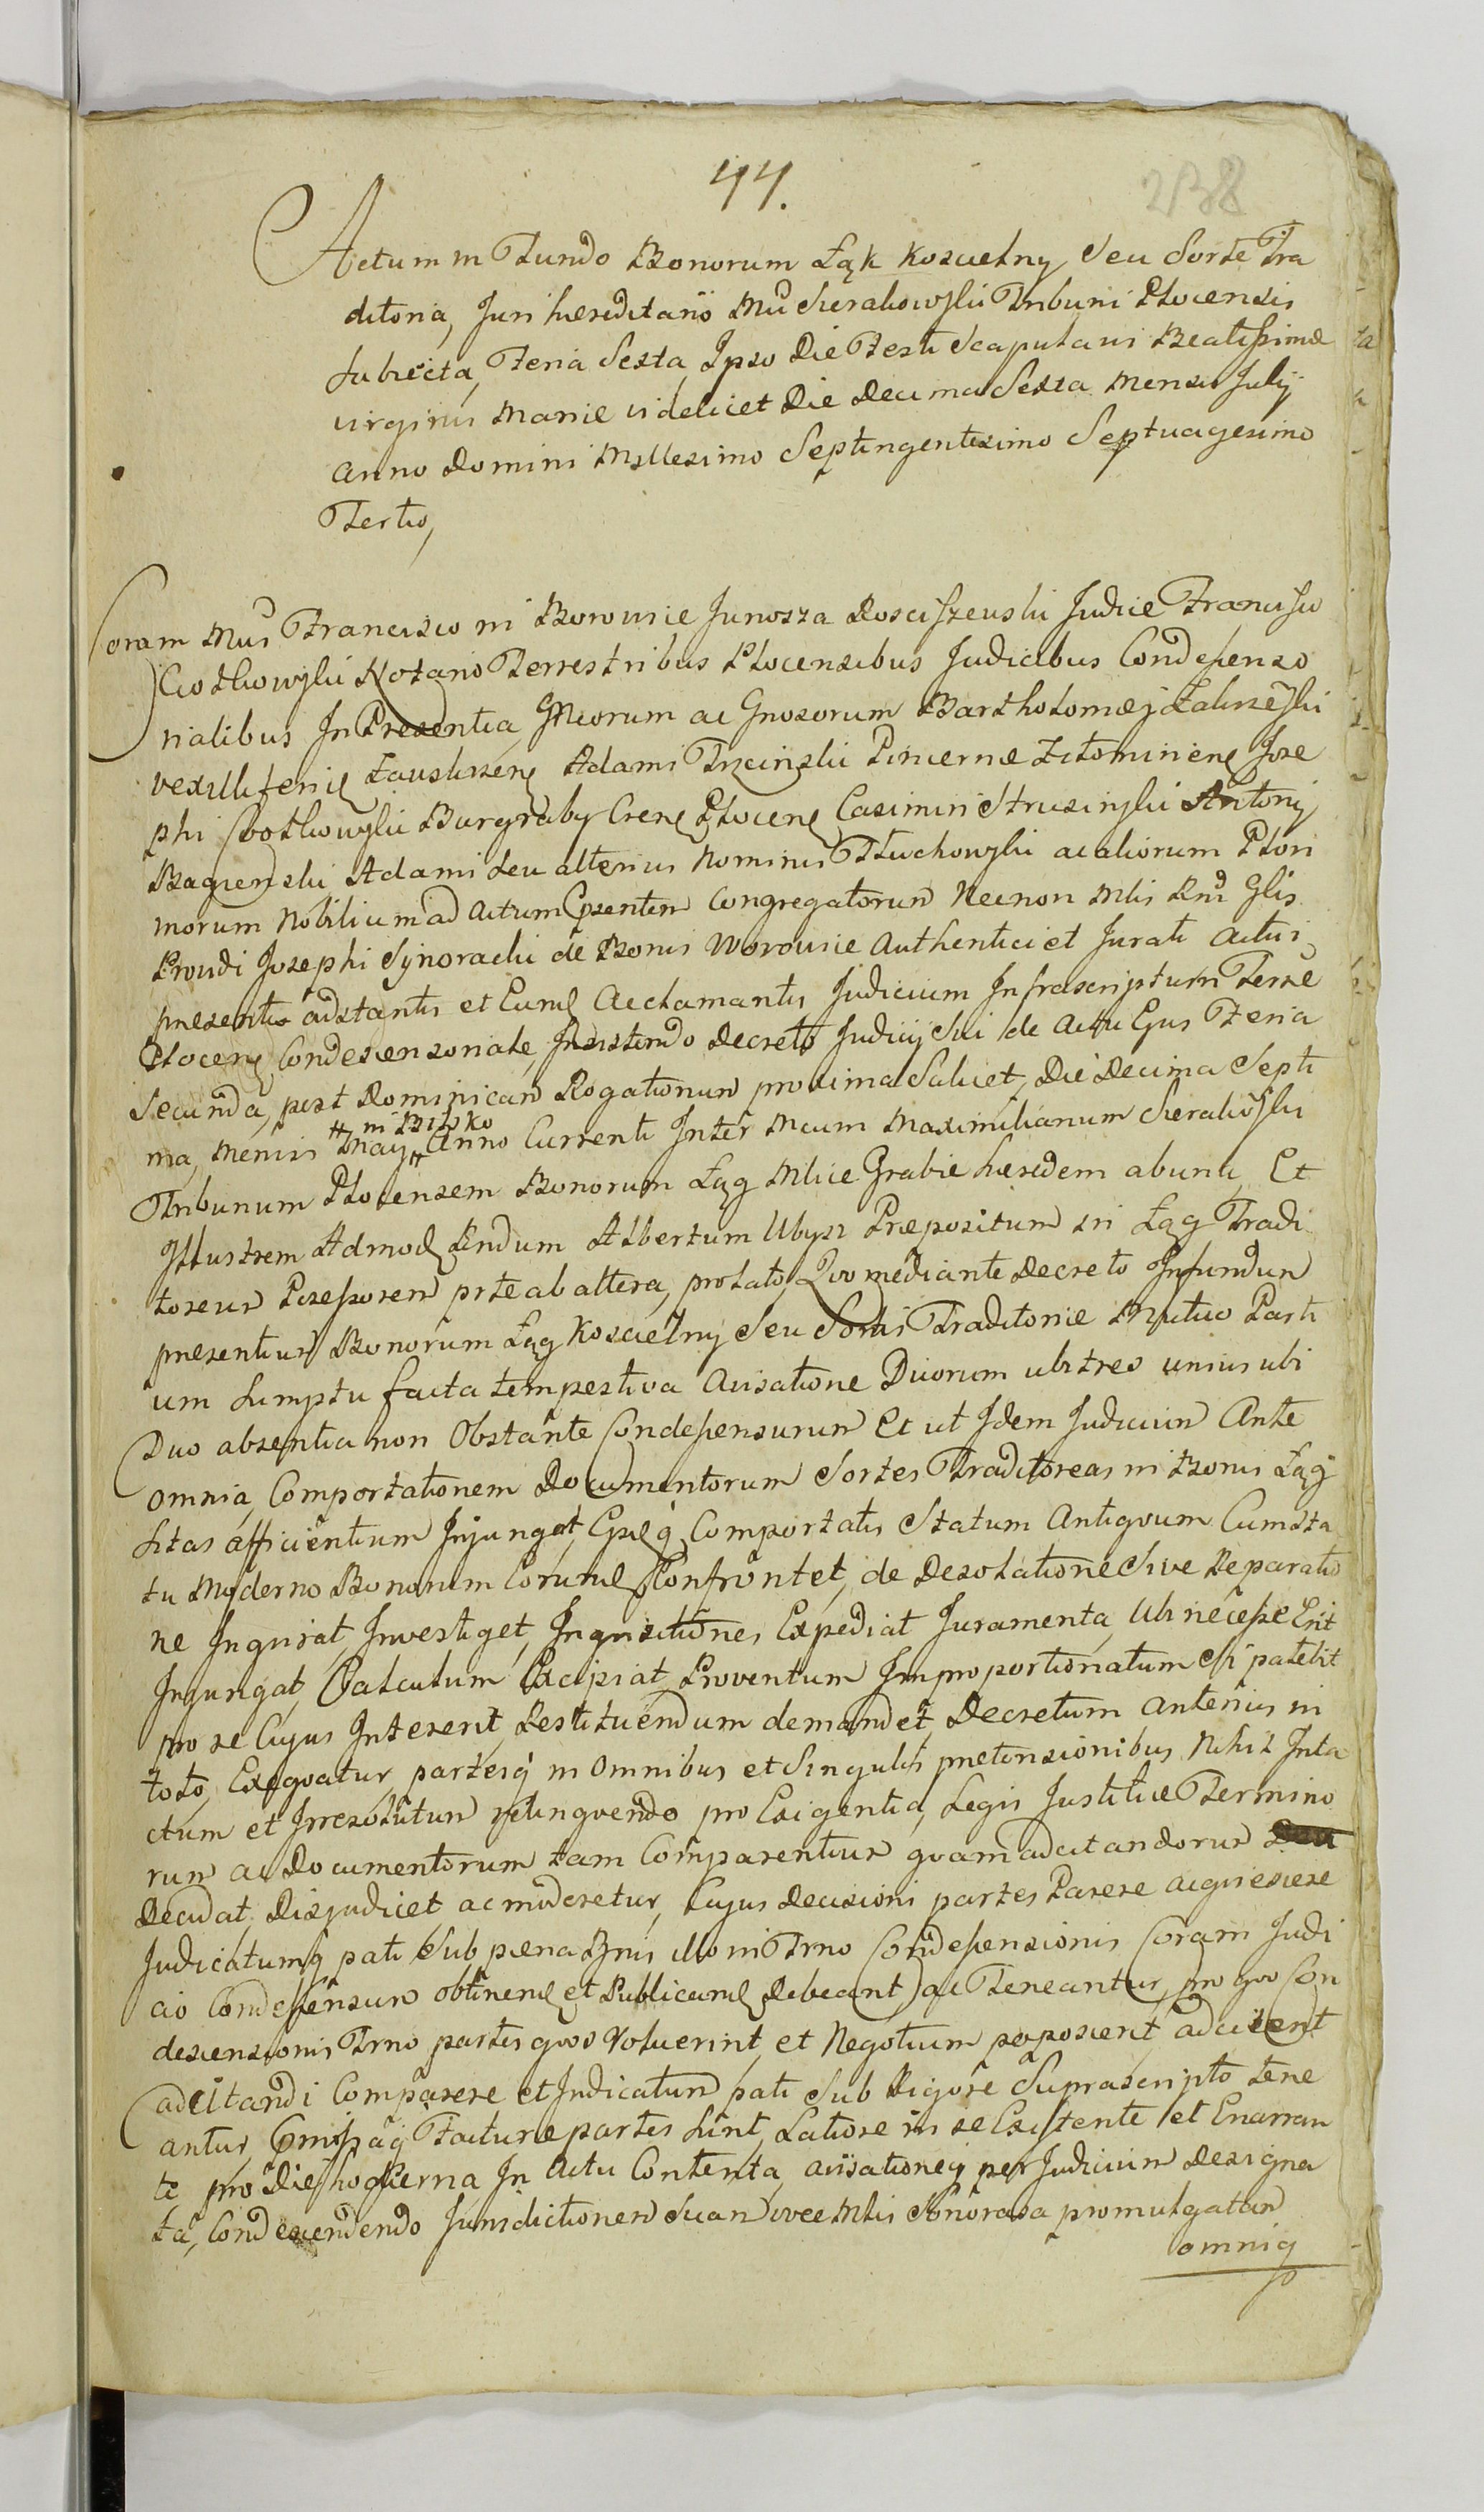 44.
238
Actum in Fundo Bonorum Łąk Koscielny Seu Sorte Tra
ditoria, Juri hæreditario Mci Sierakowski Tribuni Plocensis
Subiecta, Feria Sexta, Ipso Die Festi Scapularis Beatissimæ
virginis Mariæ videlicet Die Decima Sexta Mensis Julij
Anno Domini Millesimo Septingentesimo Septuagesimo
Tertio,
Coram Mcis Francisco in Borowice Junosza Rosciszewski Judice Francisco
Notario Terrestribus Plocensibus Judicibus Condescenso
rialibus In Presentia Gnosorum Bartholomæj
Adami Trzcinski Pincernæ Jose
phi Burgraby Plocens Casimiri Strusinski Antonij
Adami Seu alterius Nominis Tłuchowski ac aliorum Pluri
morum Nobilium ad Actum Congregatorum Necnon
Providi Josephi Synoradzki de Bonis Worowice Authentici et Jurati Actui
presenti adstantis et Acclamantis Judicium Infrascriptum Terræ
Plocens Condescensoriale, Insistendo Decreto Judicij Sui de Actu Ejus Feria
Secunda, post Dominicam Rogationum proxima Scilicet, Die Decima Septi
# in Bilsko
ma, Mensis May # Anno Currenti Inter Mcum Maximilianum Sierakowski
Tribunum Plocensem Bonorum Łąg Grabie hæredem ab una, Et
Illustrem Admod Rndum Albertum Ubysz Præpositum in Łąg Tradi
toreum Possessorem prte ab altera, prolato, Quo mediante Decreto In fundum
presentium Bonorum Łąg Koscielny Seu Sortis Traditoriæ Mutuo Parti
um Sumptu facta tempestiva Avisatione Duorum ubi tres unius ubi
Duo absentia non Obstante Condescensurum Et ut Idem Judicium Ante
omnia, Comportationem Documentorum Sortes Traditoreas in Bonis Łąg
Sitas afficientium Injungat, Comportatis Statum Antiquum Cum Sta
tu Moderno Bonorum Confrontet, de Desolatione Sive Reparatio
ne Inquirat, Investiget, Inquisitiones Expediat Juramenta, Ubi necesse Erit
Injungat, Calculum Excipiat, Proventum Improportionatum Si patebit
pro se Cujus Intererit, Restituendum demandet, Decretum anterius in
toto, Exequatur, partesq in Omnibus et Singulis pretensionibus Nihil Inta
ctum et Irresolutum relinquendo pro Exigentia, Legis Justitiæ Termino
rum ac Documentorum tam Comparentium quam adcitandorum
Decidat Disjudicet, ac moderetur, Cujus Decisioni partes Parere acquiescere
Judicatumq pati Sub pæna in Trno Condescensionis Coram Judi
cio Condescensuro obtinend et Publicand Debeant ac Teneantur, pro quo Con
descensionis Trno partes quos Voluerint, et Negotium poposcerit, adcitent
adcitandi Comparere et Judicatum pati Sub Rigore Suprascripto tene
antur, Facturæ partes Sint, Latiore in se Existente et Enarran
te pro Die hodierna In Actu Contenta, avisationeq per Judicium designa
ta, Condescendendo Jurisdictionem Suam voce Mlis Synoradzki promulgatam
omniq